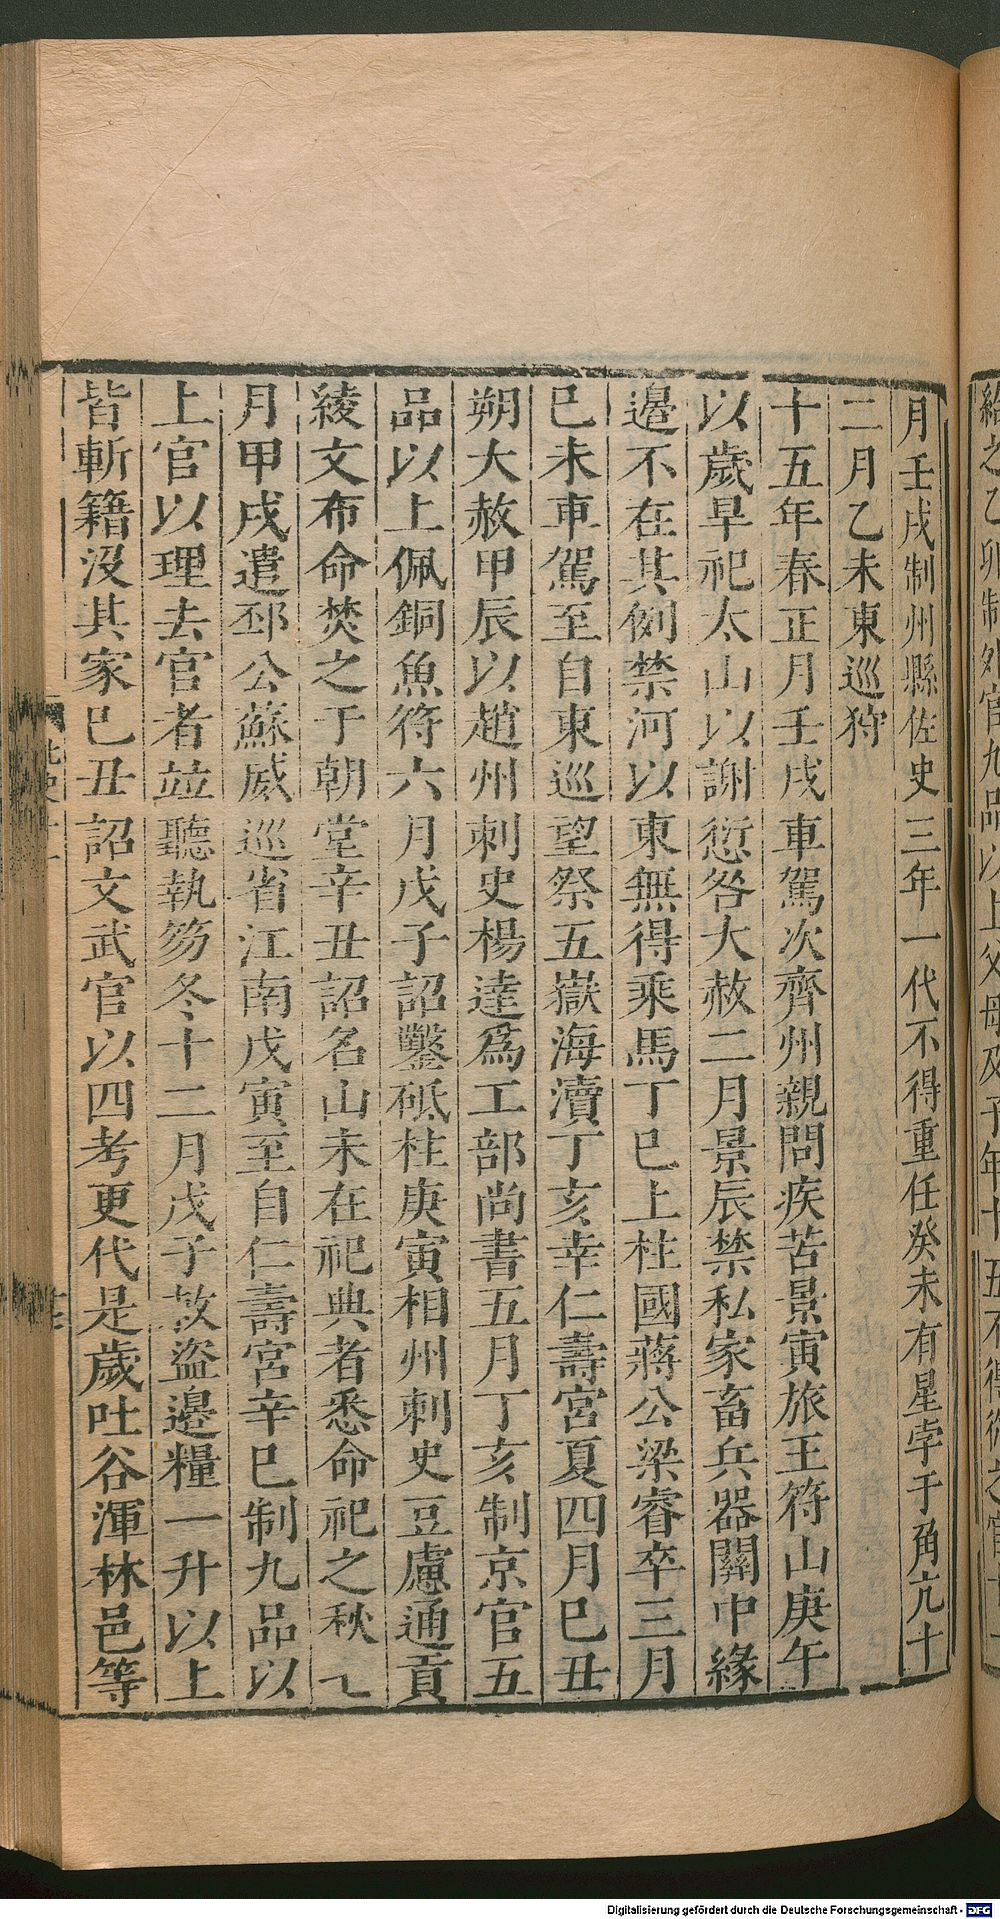 月壬戌制州縣佐史三年一代不得重任癸未有星孛于角亢十
二月乙未東巡狩
十五年春正月壬戌車駕次齊州親問疾苦景寅旅王符山庚午
以歲旱祀太山以謝愆咎大赦二月景辰禁私家畜兵器關中緣
邊不在其例禁河以東無得乘馬丁巳上柱國蔣公梁睿卒三月
巳未車駕至自東巡望祭五嶽海瀆丁亥幸仁壽宮夏四月巳丑
朔大赦甲辰以趙州刺史楊達爲工部尚書五月丁亥制京官五
品以上佩銅魚符六月戊子詔鑿砥柱庚寅相州刺史豆盧通貢
綾文布命焚之于朝堂辛丑詔名山未在祀典者悉命祀之秋七
月甲戌遣邳公蘇威巡省江南戊寅至自仁壽宮辛巳制九品以
上官以理去官者竝聽執笏冬十二月戊子敕盜邊糧一升以上
皆斬籍沒其家巳丑詔文武官以四考更代是歲吐谷渾林邑等
給之乙卯制外官九品以上父母及子年十五不得從之官
Digitalisierung gefördert durch die Deutsche Forschungsgemeinschaft - DFG